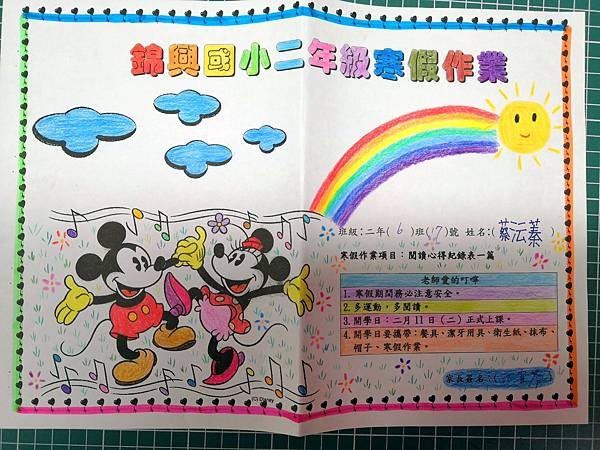 錦興國小二年級寒假作業
班級：二年(6)班(17)號 姓名：(蔡沄蓁)
寒假作業項目：閱讀心得紀錄表一篇
老師愛的叮嚀
1.寒假期間務必注意安全。
2.多運動，多閱讀。
3.開學日：二月11日(二)正式上課。
4.開學日要攜帶：餐具、潔牙用具、衛生紙、抹布、
帽子、寒假作業。
家長簽名：
(C) Disney